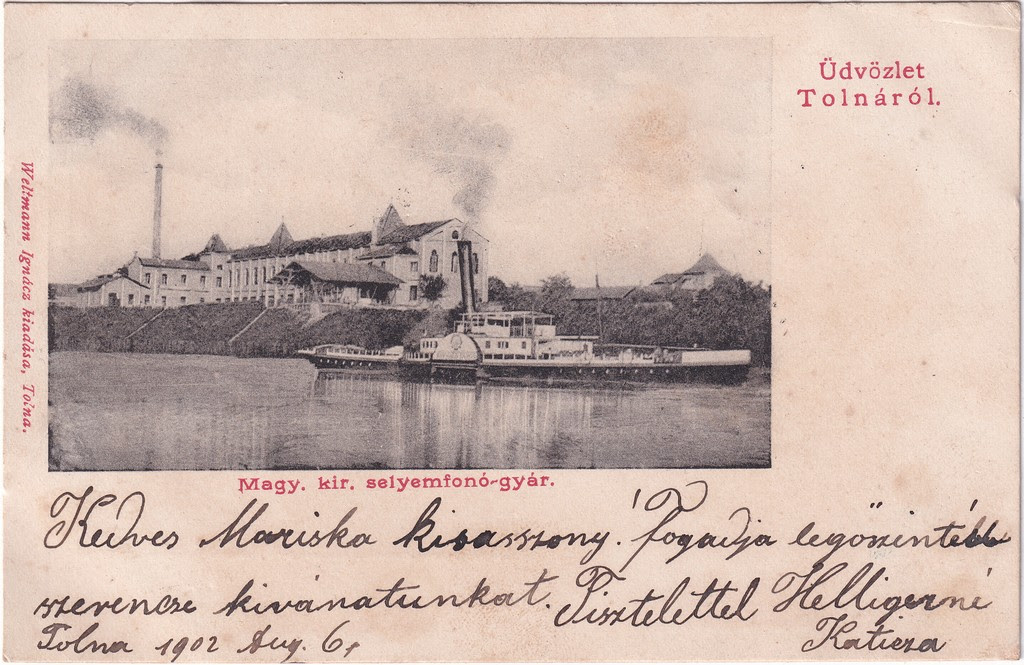 Üdvözlet
Tolnáról.
Weltmann Ignácz kiadása, Tolna.
Magy. kir. selyemfonó-gyár.
Kedves Mariska kisasszony! Fogadja legőszintébb
szerencze kivánatunkat. Tisztelettel Helligerné
Tolna 1902 Aug. 6, Katicza